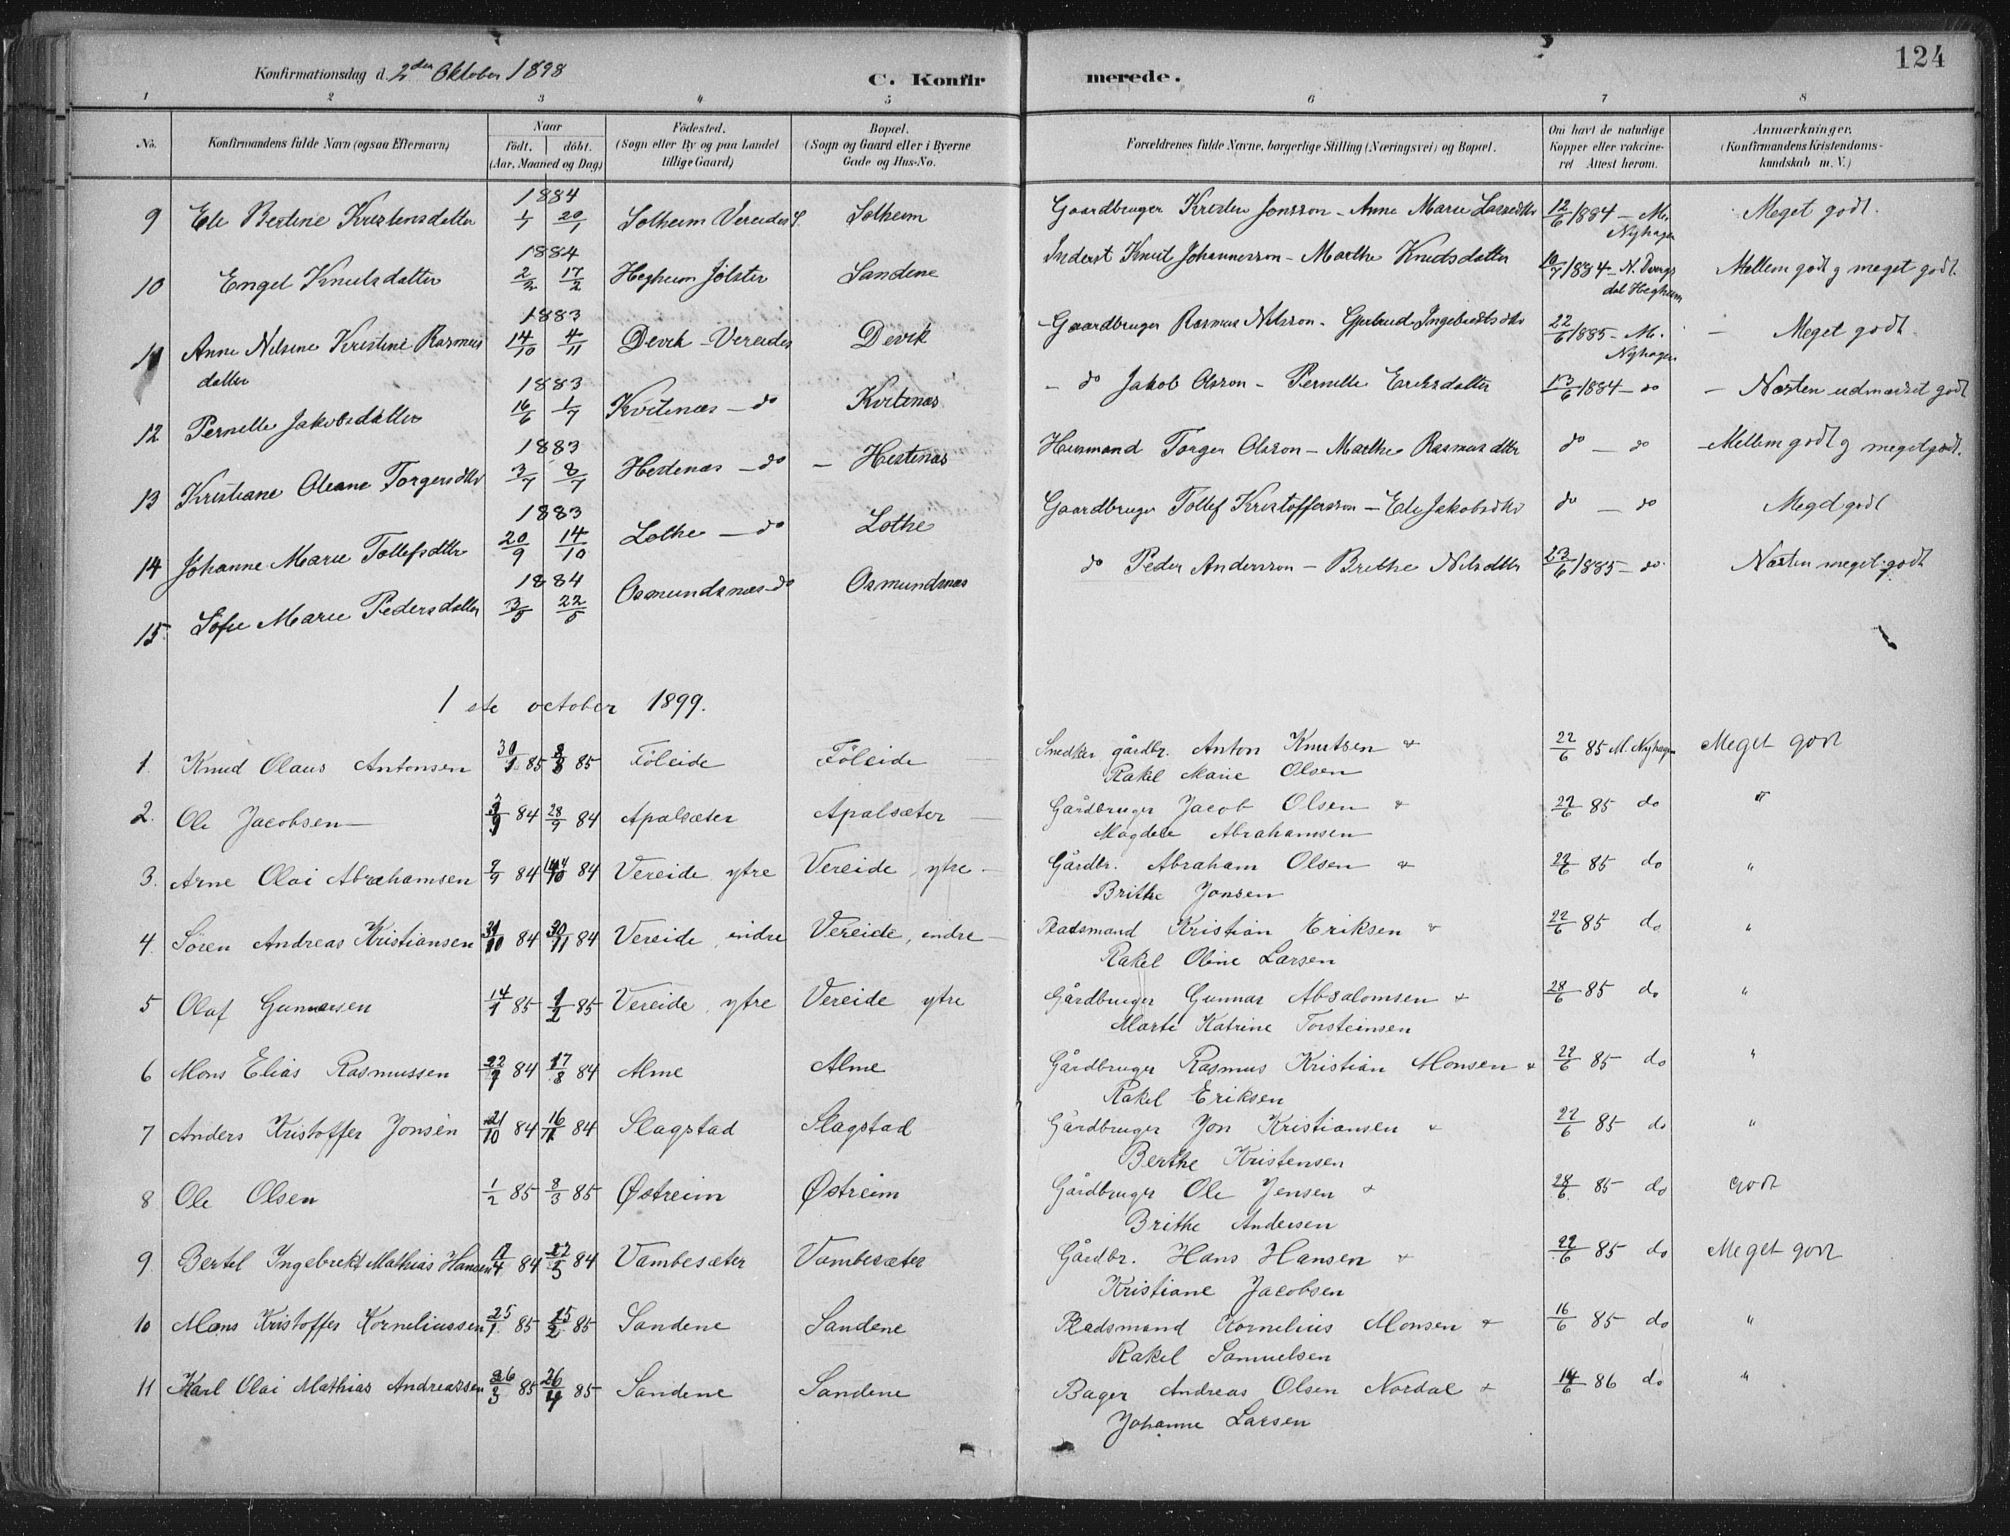 124
Konfirmationsdag d. 2den Oktober 1898
C. Konfirmerede.
1 2 3 4 5 6 7 8
No.
Konfirmandens fulde Navn (ogsaa Efternavn)
Naar
født. døbt.
(Aar, Maaned og Dag)
Fødested.
(Sogn eller By og paa Landet
tillige Gaard)
Bopæl.
(Sogn og Gaard eller i Byerne
Gade og Hus-No.
Forældrenes fulde Navne, borgerlige Stilling (Næringsvei) og Bopæl.
Om havt de naturlige
Kopper eller vakcine-
ret Attest herom.
Anmærkninger.
(Konfirmandens Kristendoms-
kundskab m. V.)
1884
9 Eli Bertine Kristensdatter 1/1 20/1 Solheim Vereides S. Solheim Gaardbruger Kristen Jonsson - Anne Marie Lassedtr 12/6 1884 - M. Nyhagen Meget godt.
1884
10 Engel Knutsdatter 2/2 17/2 Hegheim Jølster Sandene Inderst Knut Johannesson - Marthe Knudsdatter 10/7 1884 - N. Dvergsdal Hegheim Mellem godt og meget godt.
1883
11 Anne Nilsine Kristine Rasmusdatter 14/10 4/11 Devik - Vereides Devik Gaardbruger Rasmus Nilsson - Gjertrud Ingebrigtsdtr 22/6 1885 - M. Nyhagen - Meget godt.
1883
12 Pernille Jakobsdatter 16/6 1/7 Kvitenæs - do Kvitenæs - do Jakob Olsson - Pernille Eriksdatter 13/6 1884 - do - Næsten udmærket godt
1883
13 Kristiane Oleane Torgersdtr 3/7 8/7 Hestenæs - do - Hestenæs Husmand Torger Olsson - Marthe Rasmusdtr do - do - Mellem godt og meget godt.
1883
14 Johanne Marie Tollefsdtr 20/9 14/10 Lothe - do Lothe Gaardbruger Tollef Kristoffersson - Eli Jakobsdtr do - do Meget godt
1884
15 Sofie Marie Pedersdatter 3/5 22/5 Osmundsnæs - do Osmundsnæs do Peder Andersson - Brithe Nilsdtr 23/6 1885 - do Næsten meget godt
1 ste october 1899.
1. Knud Olaus Antonsen 30/1 85 8/3 85 Føleide Føleide Snedker gårdbr. Anton Knutsen & 22/6 85 M. Nyhagen Meget godt
Rakel Marie Olsen
2. Ole Jacobsen 3/9 84 28/9 84 Apalsæter Apalsæter Gårdbruger Jacob Olsen & 22/6 85 do "
Magdele Abrahamsen
3. Arne Olai Abrahamsen 9/9 84 14/10 84 Vereide, ytre Vereide, ytre Gårdbr. Abraham Olsen & 22/6 85 do "
Brithe Jonsen
4. Søren Andreas Kristiansen 31/10 84 30/11 84 Vereide, indre Vereide, indre Pladsmand Kristian Eriksen & 22/6 85 do "
Rakel Oline Larsen
5 Olaf Gunnarsen 14/1 85 1/2 85 Vereide, ytre Vereide ytre Gårdbruger Gunnar Absalomsen & 28/6 85 do "
Marte Katrine Torsteinsen
6 Mons Elias Rasmussen 22/7 84 17/8 84 Alme Alme Gårdbruger Rasmus Kristian Monsen & 22/6 85 do "
Rakel Eriksen
7 Anders Kristoffer Jonsen 21/10 84 16/11 84 Slagstad Slagstad Gårdbruger Jon Kristiansen & 22/6 85 do "
Berthe Kristensen
8 Ole Olsen 1/2 85 8/3 85 Østreim Østreim Gårdbruger Ole Jensen & 28/6 85 do godt
Brithe Andersen
9. Bertel Ingebrekt Mathias Hansen 17/4 84 22/5 84 Vambesæter Vambesæter Gårdbr. Hans Hansen & 22/6 85 do Meget godt
Kristiane Jacobsen
10 Mons Kristoffer Korneliussen 25/1 85 15/2 85 Sandene Sandene Pladsmand Kornelius Monsen & 16/6 85 do "
Rakel Samuelsen
11 Karl Olai Mathias Andreassen 26/3 85 26/4 85 Sandene Sandene Bager Andreas Olsen Nordal & 14/6 86 do "
Johanne Larsen